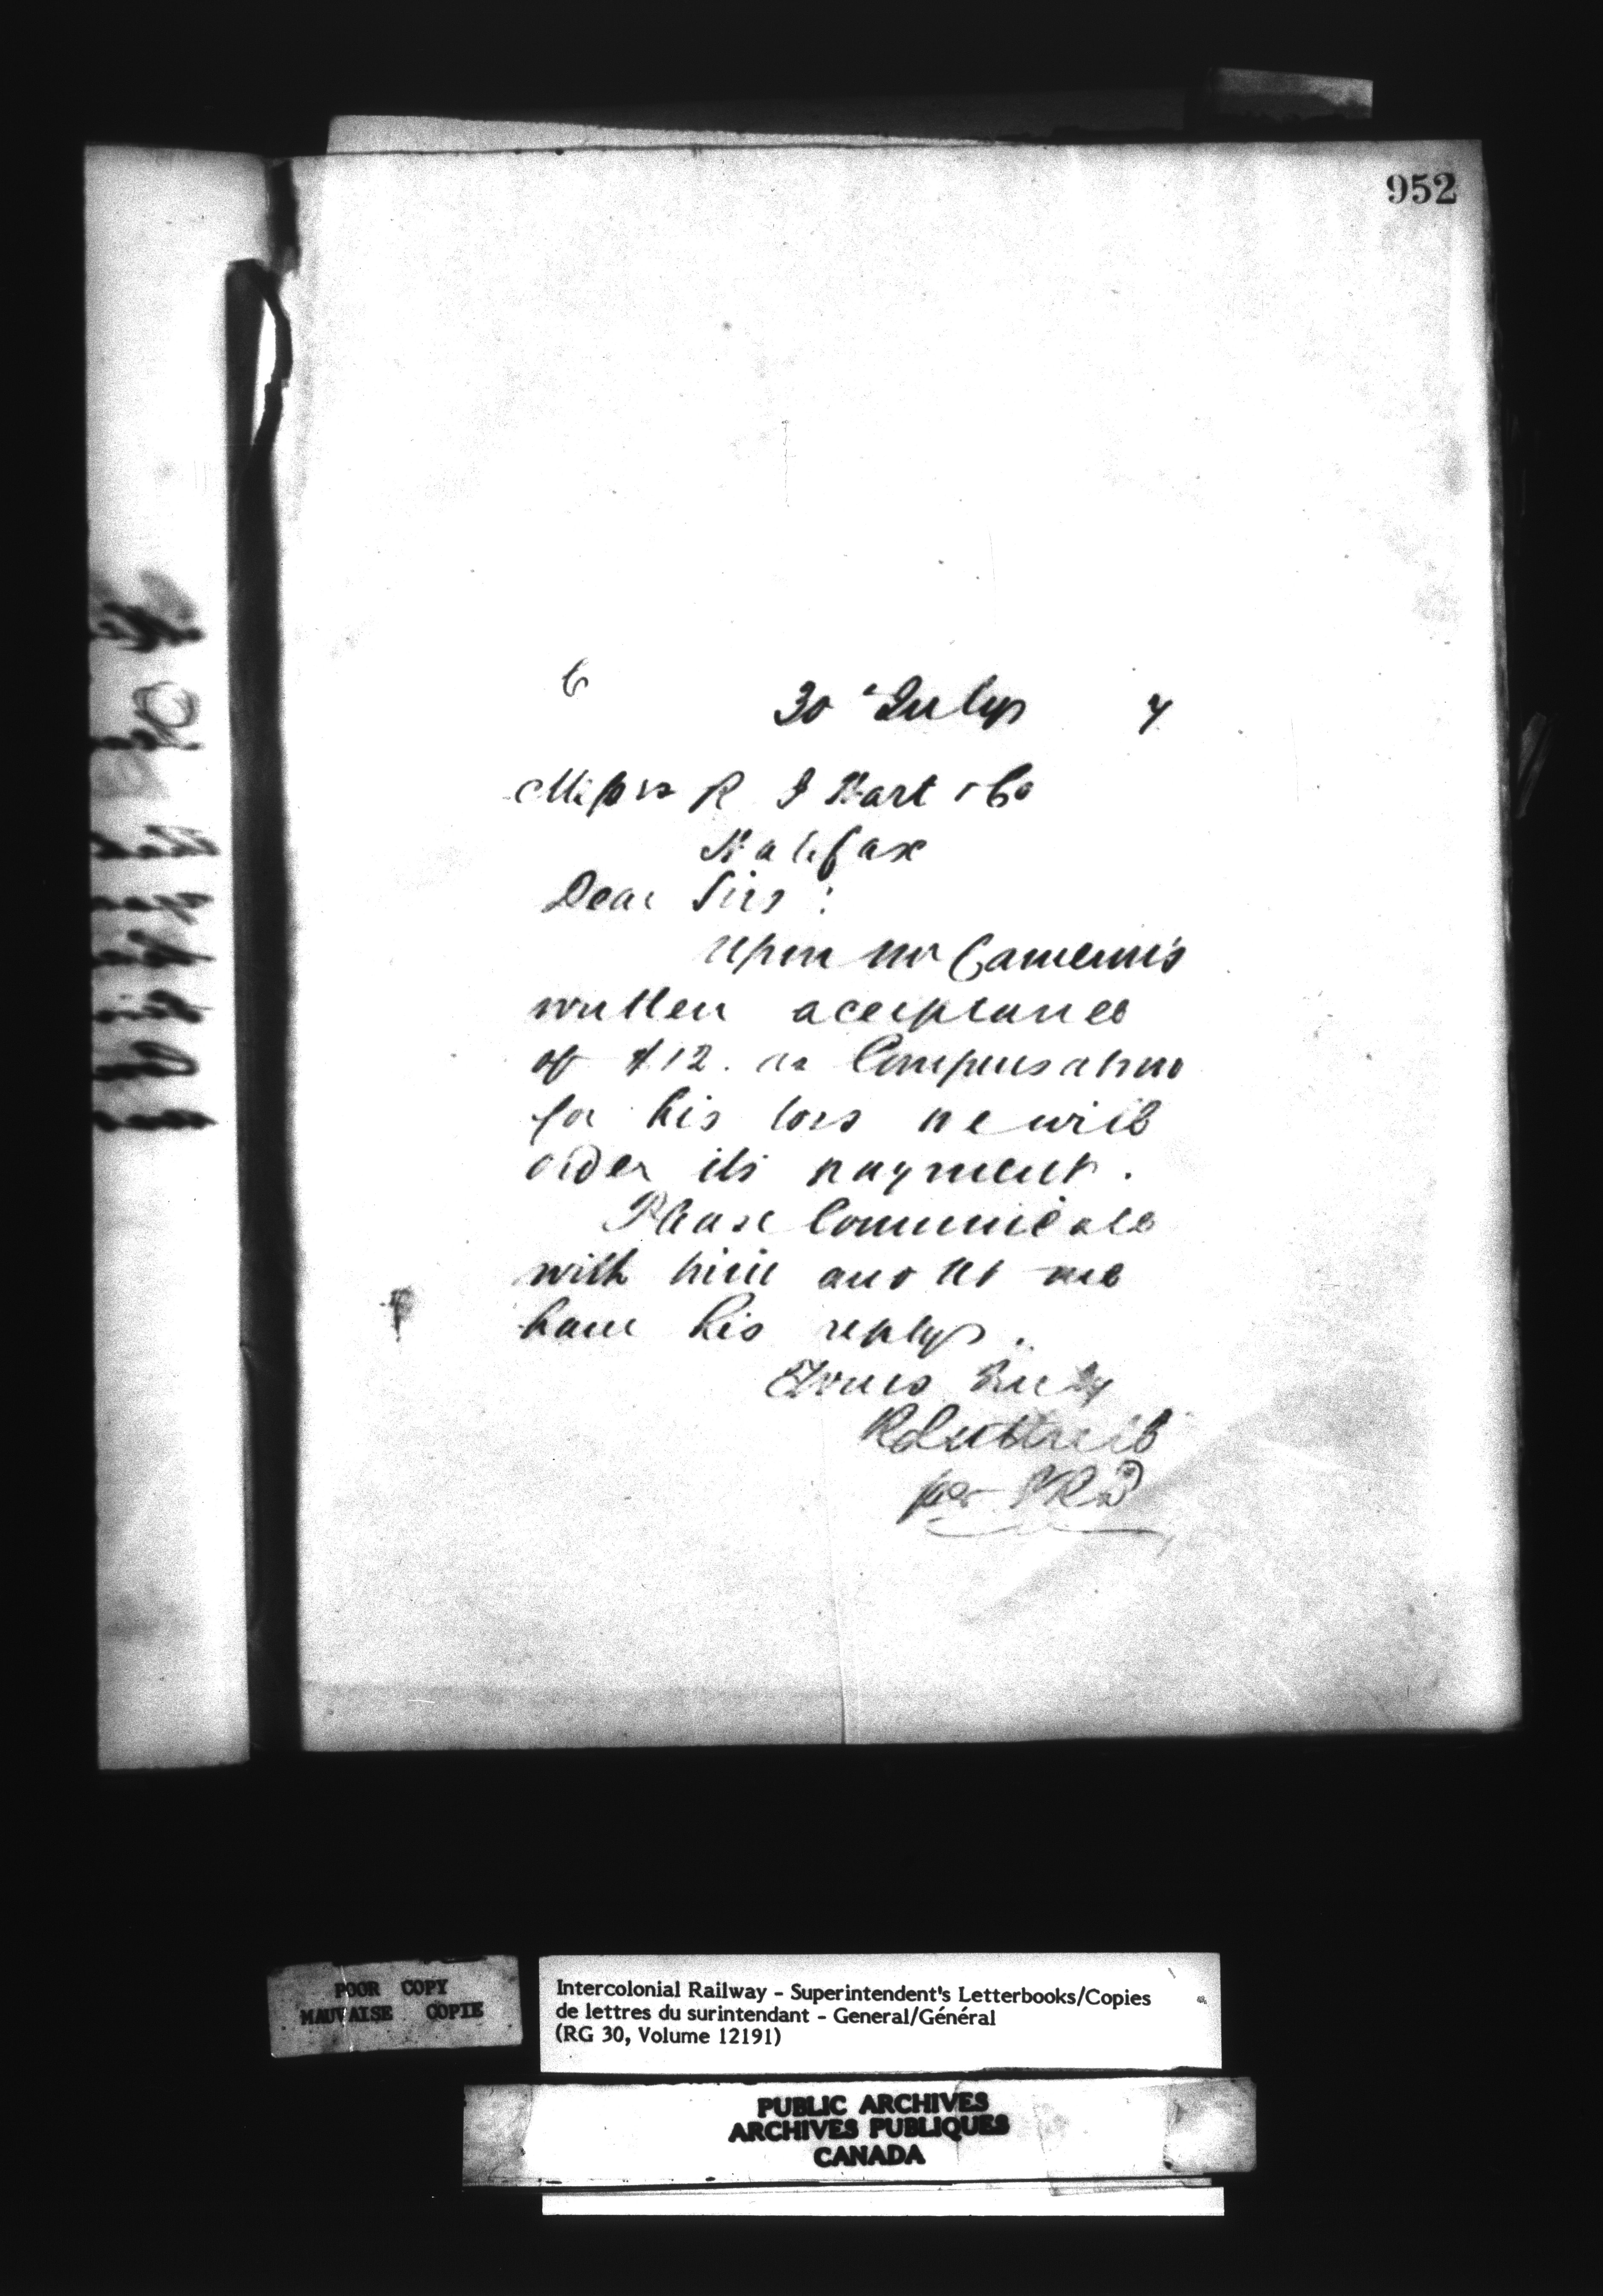 952
C 30 July 7
Messrs R I Hart & Co
Halifax
Dear Sirs :
Upon Mr Cameron's
written acceptance
of $12. as Compensation
for his loss we will
order its payment.
Please Communicate
with him and let me
have his reply.
Yours Truly
R Luttrell
per
POOR COPY
MAUVAISE COPIE
Intercolonial Railway - Superintendent's Letterbooks/Copies
de lettres du surintendant - General/Général
(RG 30, Volume 12191)
PUBLIC ARCHIVES
ARCHIVES PUBLIQUES
CANADA